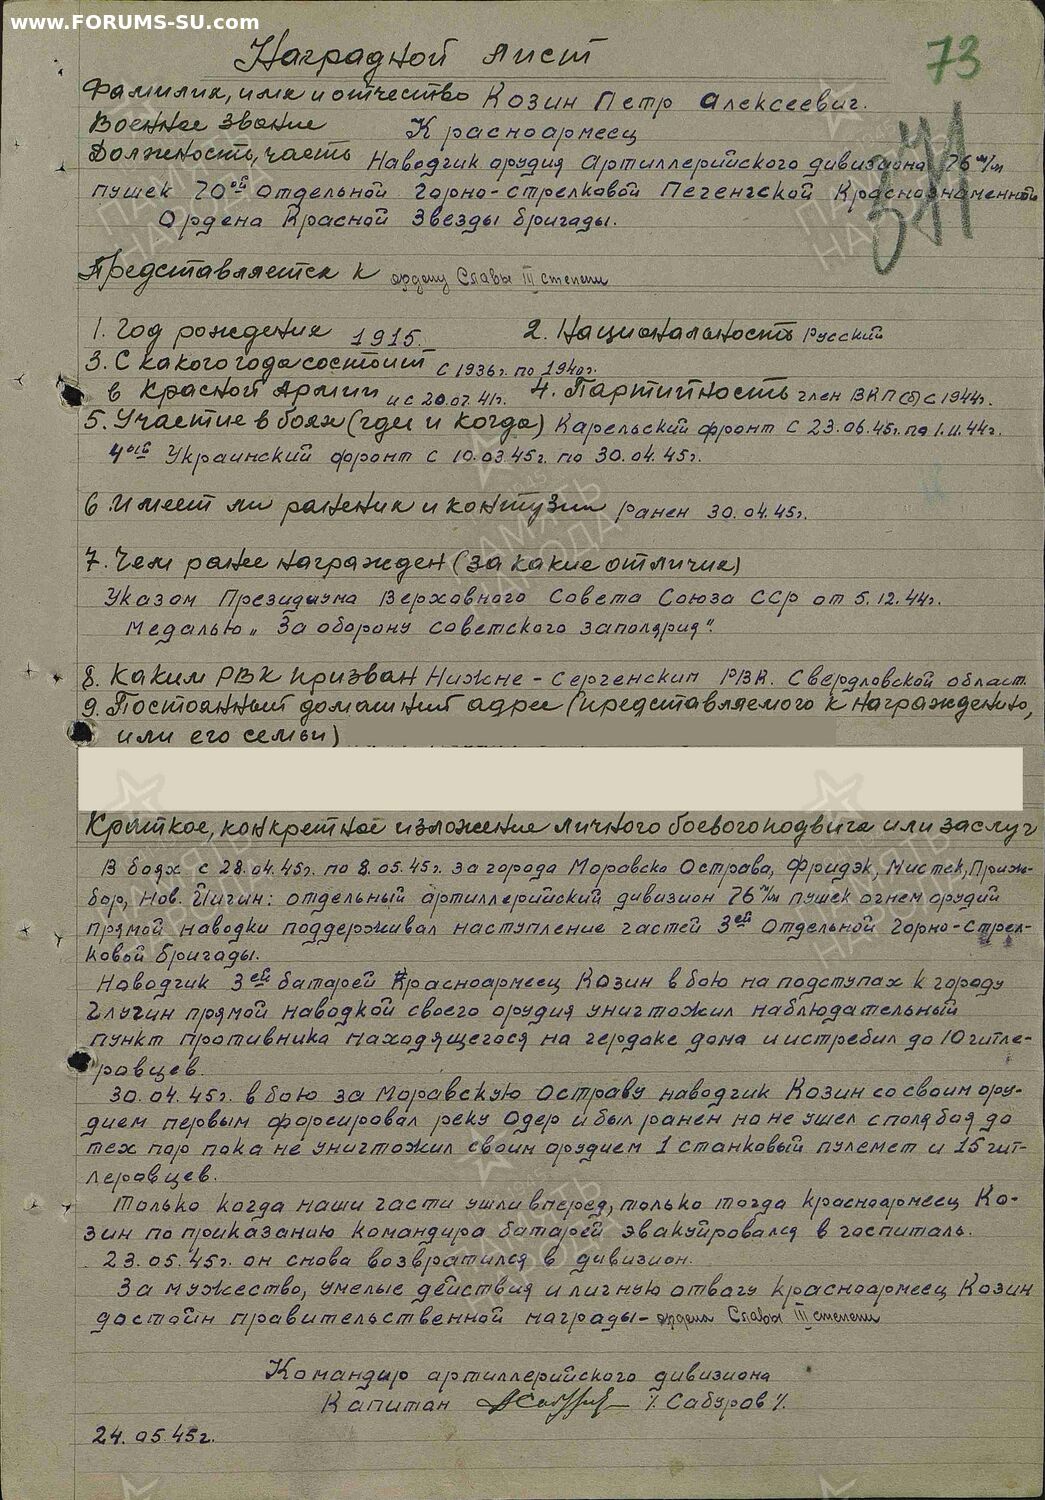 www.FORUMS-SU.com
Наградной лист
73
371
Фамилия, имя и отчество Козин Петр Алексеевич.
Военное звание Красноармеец
Должность, часть Наводчик орудия Артиллерийского дивизиона 76 м/м
пушек 70ой Отдельной Горно-стрелковой Печенгской Краснознаменной
Ордена Красной Звезды бригады.
Представляется к ордену Славы III степени
1. Год рождения 1915. 2. Национальность Русский
3. С какого года состоит с 1936г. по 1940г.
в Красной Армии и с 20.07.41г. 4. Партийность член ВКП(б) с 1944г.
5. Участие в боях (где и когда) Карельский фронт с 23.06.45г. по 1.11.44г.
4ый Украинский фронт с 10.03.45г. по 30.04.45г.
6. Имеет ли ранения и контузии ранен 30.04.45г.
7. Чем ранее награжден (за какие отличия)
Указом Президиума Верховного Совета Союза ССР от 5.12.44г.
медалью „За оборону советского заполярия".
8. Каким РВК призван Нижне-Сергенским РВК. Свердловской област.
9. Постоянный домашний адрес (представляемого к награждению,
или его семьи)
Краткое, конкретное изложение личного боевого подвига или заслуг
В боях с 28.04.45г. по 8.05.45г. за города Моравско Острава, Фридэк, Мистек, Приж-
бор, Нов. Йичин: отдельный артиллерийский дивизион 76 м/м пушек огнем орудий
прямой наводки поддерживал наступление частей 3ей Отдельной Горно-Стрел-
ковой бригады.
Наводчик 3ей батареи Красноармеец Козин в бою на подступах к городу
Глучин прямой наводкой своего орудия уничтожил наблюдательный
пункт противника находящегося на чердаке дома и истребил до 10 гитле-
ровцев.
30.04.45г. в бою за Моравскую Остраву наводчик Козин со своим ору-
дием первым форсировал реку Одер и был ранен но не ушел с поля боя до
тех пор пока не уничтожил своим орудием 1 станковый пулемет и 15 гит-
леровцев.
Только когда наши части ушли вперед, только тогда красноармеец Ко-
зин по приказанию командира батареи эвакуировался в госпиталь.
23.05.45г. он снова возвратился в дивизион.
За мужество, умелые действия и личную отвагу красноармеец Козин
достоин правительственной награды - ордена Славы III степени
Командир артиллерийского дивизиона
Капитан /Сабуров/.
24.05.45г.
ПАМЯТЬ НАРОДА